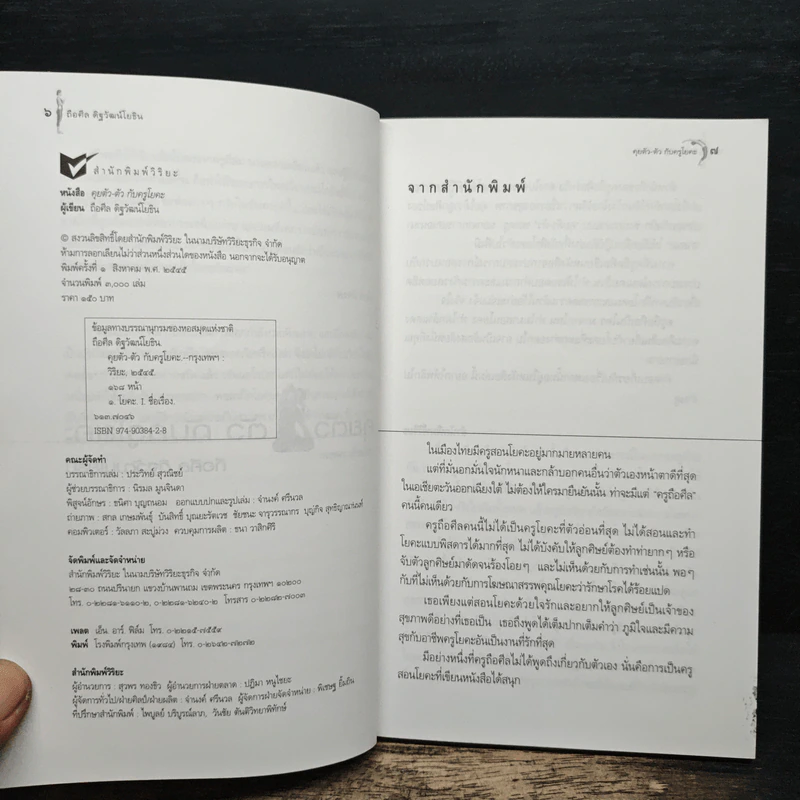 ๖ ถือศีล ดิฐวัฒน์โยธิน
สำนักพิมพ์วิริยะ
หนังสือ คุยตัว-ตัว กับครูโยคะ
ผู้เขียน ถือศีล ดิฐวัฒน์โยธิน
© สงวนลิขสิทธิ์โดยสำนักพิมพ์วิริยะ ในนามบริษัทวิริยะธุรกิจ จำกัด
ห้ามการลอกเลียนไม่ว่าส่วนหนึ่งส่วนใดของหนังสือ นอกจากจะได้รับอนุญาต
พิมพ์ครั้งที่ ๑ สิงหาคม พ.ศ. ๒๕๔๕
จำนวนพิมพ์ ๓,๐๐๐ เล่ม
ราคา ๑๕๐ บาท
ข้อมูลทางบรรณานุกรมของหอสมุดแห่งชาติ
ถือศีล ดิฐวัฒน์โยธิน
คุยตัว-ตัว กับครูโยคะ.--กรุงเทพฯ :
วิริยะ, ๒๕๔๕.
๑๖๘ หน้า
๑. โยคะ. I. ชื่อเรื่อง.
๖๑๓.๗๐๔๖
ISBN 974-90384-2-8
คณะผู้จัดทำ
บรรณาธิการเล่ม : ประวิทย์ สุวณิชย์
ผู้ช่วยบรรณาธิการ : นิรมล มูนจินดา
พิสูจน์อักษร : ชนิดา บุญถนอม ออกแบบปกและรูปเล่ม : จำนงค์ ศรีนวล
ถ่ายภาพ : สกล เกษมพันธุ์ บันสิทธิ์ บุณยะรัตเวช ชัยชนะ จารุวรรณากร บุญกิจ สุทธิญาณานนท์
คอมพิวเตอร์ : วัลลภา สะบู่ม่วง ควบคุมการผลิต : ธนา วาสิกศิริ
จัดพิมพ์และจัดจำหน่าย
สำนักพิมพ์วิริยะ ในนามบริษัทวิริยะธุรกิจ จำกัด
๒๘-๓๐ ถนนปรินายก แขวงบ้านพานถม เขตพระนคร กรุงเทพฯ ๑๐๒๐๐
โทร. ๐-๒๒๘๑-๖๑๑๐-๒, ๐-๒๒๘๑-๖๒๔๐-๒ โทรสาร ๐-๒๒๘๒-๗๐๐๓
เพลต เอ็น อาร์ ฟิล์ม โทร. ๐-๒๒๑๕-๗๕๕๙
พิมพ์ โรงพิมพ์กรุงเทพ (๑๙๘๔) โทร. ๐-๒๖๔๒-๗๒๗๒
สำนักพิมพ์วิริยะ
ผู้อำนวยการ : สุวพร ทองธิว ผู้อำนวยการฝ่ายตลาด : ปฎิมา หนูไชยะ
ผู้จัดการทั่วไป/ฝ่ายศิลป์/ฝ่ายผลิต : จำนงค์ ศรีนวล ผู้จัดการฝ่ายจัดจำหน่าย : พิเชษฐ ยิ้มถิน
ที่ปรึกษาสำนักพิมพ์ : ไพบูลย์ บริบูรณ์ลาภ, วันชัย ตันติวิทยาพิทักษ์
คุยตัว-ตัว กับครูโยคะ ๗
จากสำนักพิมพ์
ในเมืองไทยมีครูสอนโยคะอยู่มากมายหลายคน
แต่ที่มั่นอกมั่นใจนักหนาและกล้าบอกคนอื่นว่าตัวเองหน้าตาดีที่สุด
ในเอเชียตะวันออกเฉียงใต้ ไม่ต้องให้ใครมายืนยันนั้น ท่าจะมีแต่ “ครูถือศีล”
คนนี้คนเดียว
ครูถือศีลคนนี้ไม่ได้เป็นครูโยคะที่ตัวอ่อนที่สุด ไม่ได้สอนและทำ
โยคะแบบพิสดารได้มากที่สุด ไม่ได้บังคับให้ลูกศิษย์ต้องทำท่ายากๆ หรือ
จับตัวลูกศิษย์มาดัดจนร้องโอยๆ และไม่เห็นด้วยกับการทำเช่นนั้น พอๆ
กับที่ไม่เห็นด้วยกับการโฆษณาสรรพคุณโยคะว่ารักษาโรคได้ร้อยแปด
เธอเพียงแต่สอนโยคะด้วยใจรักและอยากให้ลูกศิษย์เป็นเจ้าของ
สุขภาพดีอย่างที่เธอเป็น เธอถึงพูดได้เต็มปากเต็มคำว่า ภูมิใจและมีความ
สุขกับอาชีพครูโยคะอันเป็นงานที่รักที่สุด
มีอย่างหนึ่งที่ครูถือศีลไม่ได้พูดถึงเกี่ยวกับตัวเอง นั่นคือการเป็นครู
สอนโยคะที่เขียนหนังสือได้สนุก